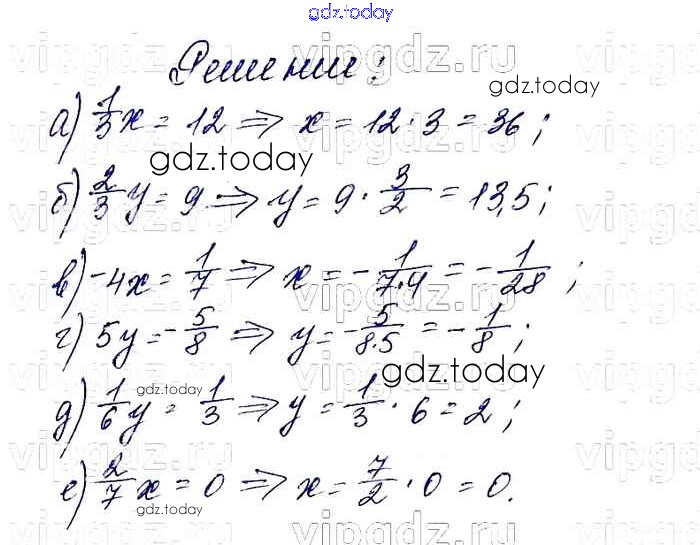 gdz.today
vipgdz.ru
Решение:
gdz.today
а) 1/3 x = 12 ⇒ x = 12 · 3 = 36;
gdz.today
б) 2/3 y = 9 ⇒ y = 9 · 3/2 = 13,5;
vipgdz.ru
в) -4x = 1/7 ⇒ x = - 1/(7·4) = - 1/28;
vipgdz.ru
г) 5y = - 5/8 ⇒ y = - 5/(8·5) = - 1/8;
gdz.today
gdz.today
д) 1/6 y = 1/3 ⇒ y = 1/3 · 6 = 2;
vipgdz.ru
е) 2/7 x = 0 ⇒ x = 7/2 · 0 = 0.
gdz.today
vipgdz.ru